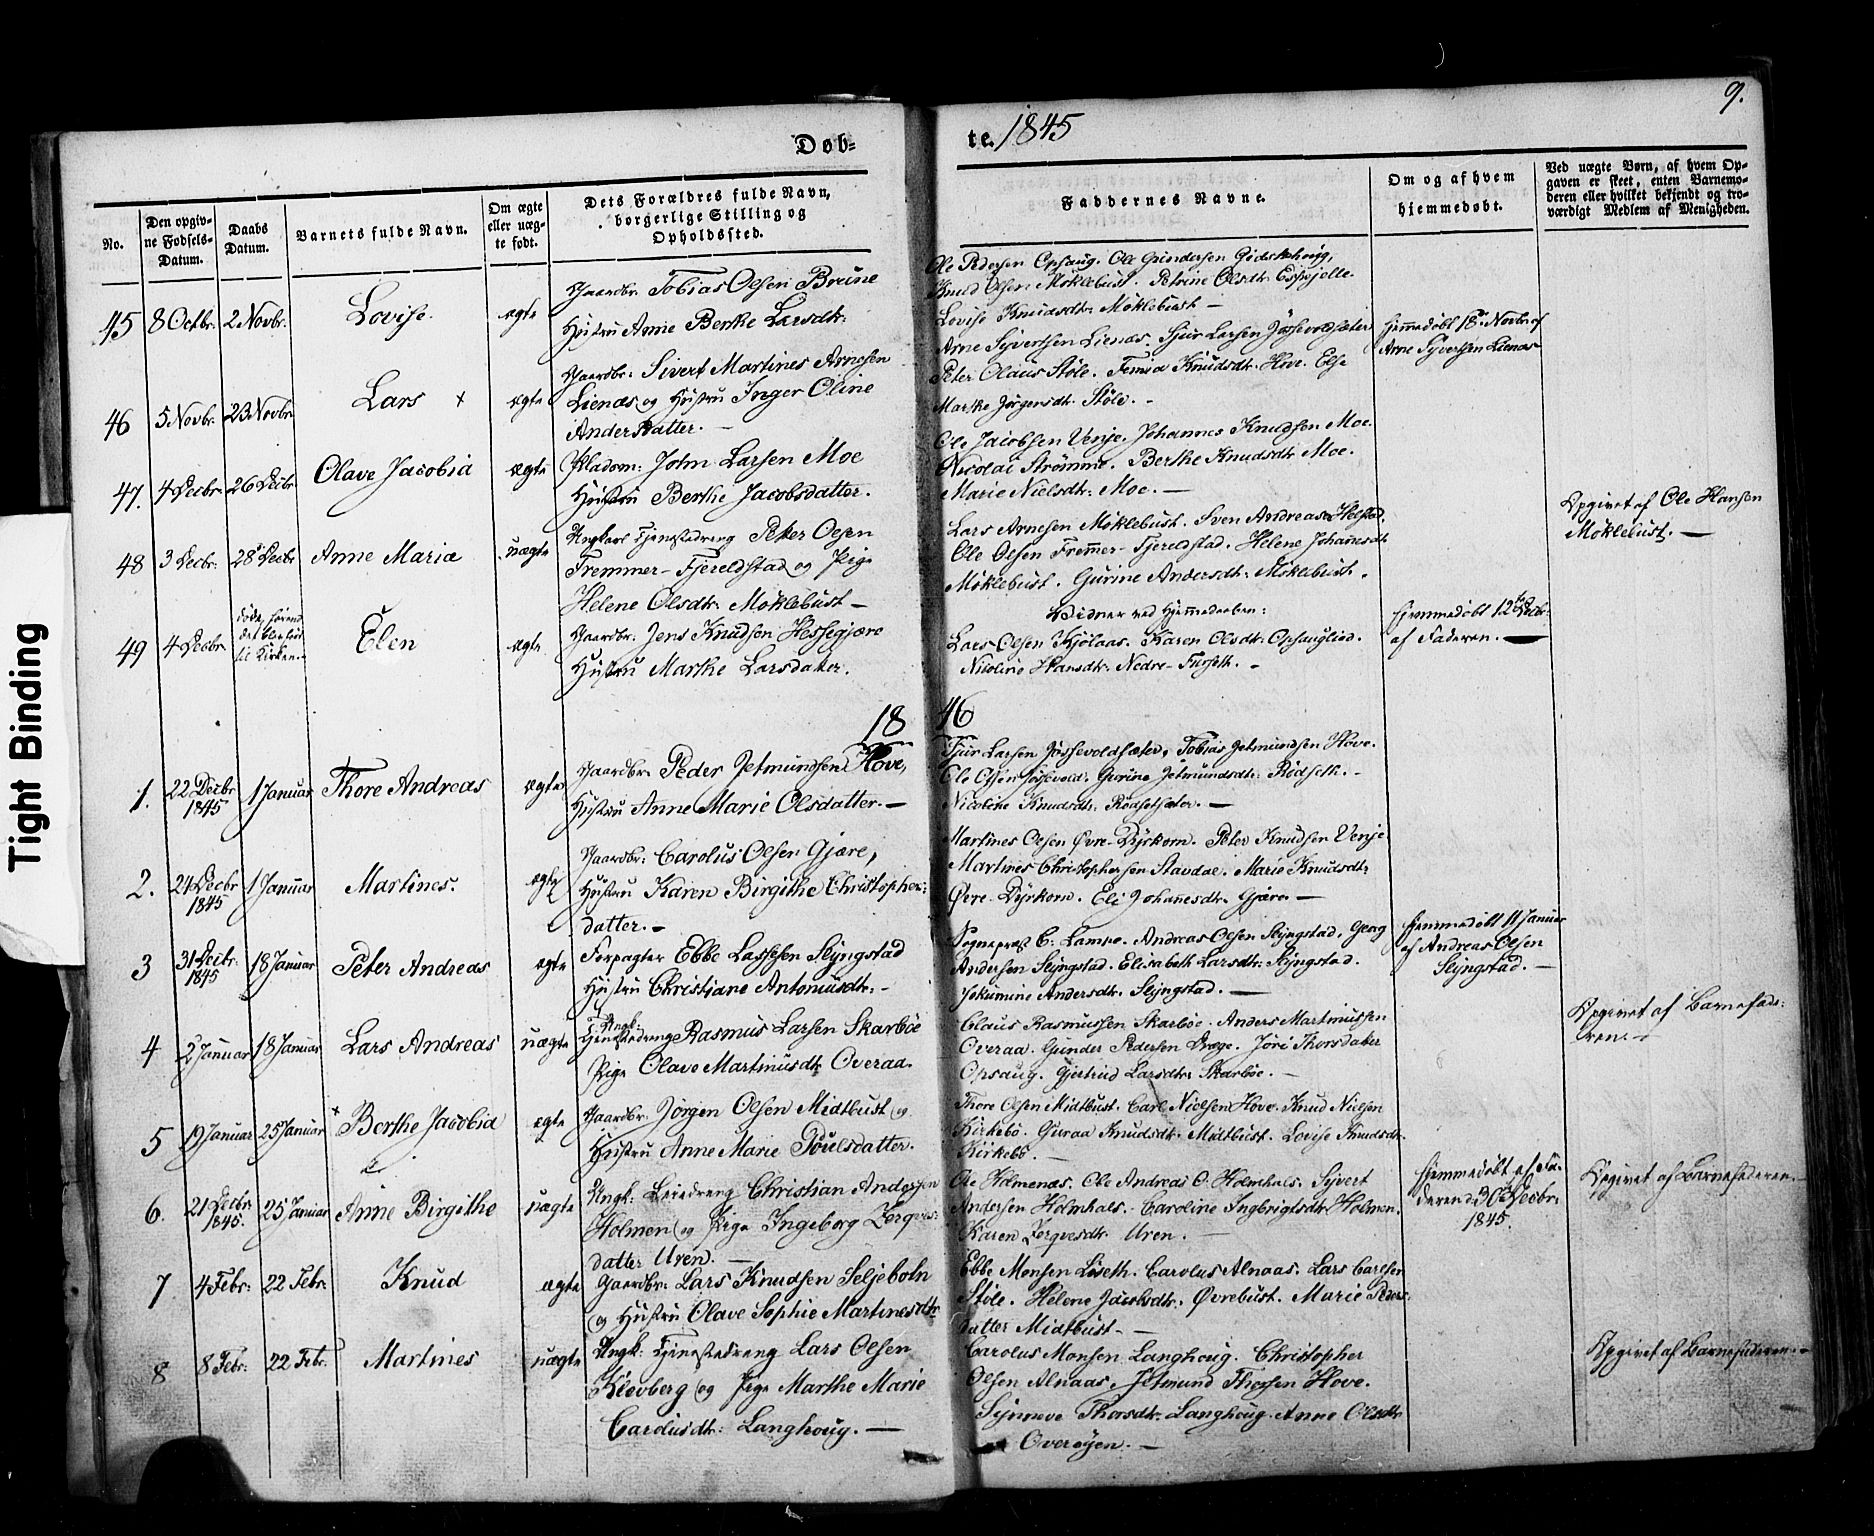 Tight Binding
Døb-
te. 1845
9.
No.
Den opgiv-
ne Fødsels-
Datum.
Daabs
Datum.
Barnets fulde Navn.
Om ægte
eller uæg-
te født.
Dets Forældres fulde Navn,
borgerlige Stilling og
Opholdssted.
Faddernes Navne.
Om og af hvem
hjemmedøbt.
Ved uægte Børn, af hvem Op-
gaven er skeet, enten Barnemo-
deren eller hvilket bekjendt og tro-
værdigt Medlem af Menigheden.
45 8 Octbr. 2 Novbr. Lovise. ægte
Gaardbr. Tobias Olsen Brune
Hustru Anne Berthe Larsdtr.
Ole Pedersen Opsaug. Ole Gundersen
Knud Olsen Møklebust. Petrine Olsdtr.
Lovise Knudsdtr. Møklebust —
46 5 Novbr. 23 Novbr. Lars + ægte
Gaardbr: Sivert Martines Arnesen
Lienæs og Hustru Inger Oline
Andersdatter. —
Arne Syvertsen Lienæs. Sjur Larsen
Peter Olaus Støle. Knudsdtr. Hove. Else
Marthe Jørgensdtr. Støle. -
Hjemmedøbt 18de Novbr. af
Arne Syvertsen Lienæs
47. 4 Decbr. 26 Decbr. Olave Jacobia ægte
Pladsm: John Larsen Moe
Hustru Berthe Jacobsdatter.
Ole Jacobsen Venje. Johannes Knudsen Moe.
Nicolai Strømme. Berthe Knudsdtr. Moe.
Marie Nielsdtr. Moe. —
48 3 Decbr. 28 Decbr. Anne Maria uægte
Ungkarl Tjenestedreng Peter Olsen
Fremmer-Fjereldstad og Pige
Helene Olsdtr. Møklebust —
Lars Arnesen Møklebust. Sven Andreas
Ole Olsen Fremmer-Fjereldstad. Helene Johannesdtr
Møklebust. Gurine Andersdtr. Møklebust.
Opgivet af Ole Hansen
Møklebust. —
49 4 Decbr. døde, førend
det blev
til Kirken. Elen ægte
Gaardbr: Jens Knudsen Hessegjære
Hustru Marthe Larsdatter.
Vidner ved Hjemmedaaben:
Lars Olsen Kjølaas. Karen Olsdtr. Opsauglied.
Nicoline Hansdtr. Nedre-Furseth. -
Hjemmedøbt 12te Decbr.
af Faderen. —
18 46
1. 22 Decbr
1845 1 Januar Thore Andreas ægte
Gaardbr. Peder Jetmundsen Hove,
Hustru Anne Marie Olsdatter. —
Sjur Larsen Tobias Jetmundsen Hove.
Ole Olsen Gurine Jetmundsdtr. Rødseth. -
Nicoline Knudsdtr. Rødsetsæter. —
2. 24 Decbr
1845 1 Januar Martines. ægte
Gaardbr: Carolus Olsen Gjære,
Hustru Karen Birgithe Christopher-
datter. —
Martines Olsen Øvre-Dyrkorn. Peter Knudsen Venje
Martines Christophersen Stavdal. Marie Knudsdtr.
Øvre-Dyrkorn. Eli Johannesdtr. Gjære. —
3 31 Decbr.
1845 18 Januar Peter Andreas ægte
Forpagter Ebbe Lassesen Slyngstad
Hustru Christiane Antoniusdtr. -
Sognepræst C. Lampe. Andreas Olsen Slyngstad. Georg
Andersen Slyngstad. Elisabeth Larsdtr. Slyngstad.
Jokumine Andersdtr. Slyngstad. —
Hjemmedøbt 11 Januar
af Andreas Olsen
Slyngstad. —
4 2 Januar 18 Januar Lars Andreas uægte
Ungk.
Tjenestedreng Rasmus Larsen Skarbøe
Pige Olave Martinusdtr. Overaa.
Claus Rasmussen Skarbøe. Anders Martinussen
Overaa. Gunder Pedersen Dræge. Jøri Thorsdatter
Opsaug. Gjertrud Larsdtr. Skarbøe. —
Opgivet af Barnefade-
ren. —
5 19 Januar 25 Januar + Berthe Jacobia ægte
Gaardbr. Jørgen Olsen Midtbust og
Hustru Anne Marie Poulsdatter.
Thore Olsen Midtbust. Carl Nielsen Hove. Knud Nielsen
Kirkebø. Guraa Knudsdtr. Midtbust. Lovise Knudsdtr.
Kirkebø. —
6. 21 Decbr.
1845. 25 Januar Anne Birgithe uægte
Ungk: Leiedreng Christian Andersen
Holmen og Pige Ingeborg Zerqves-
datter Uren. —
Ole Holmenæs. Ole Andreas O. Holmhals. Syvert
Andersen Holmhals. Caroline Ingbrigtsdtr. Holmen.
Karen Zerqvesdtr. Uren. —
Hjemmedøbt af Fa-
deren d. 30te Decbr.
1845.
Opgivet af Barnefaderen. -
7 4 Febr: 22 Febr. Knud ægte
Gaardbr. Lars Knudsen Seljebotn
og Hustru Olave Sophie Martinesdtr
Ebbe Monsen Løseth. Carolus Alnaas. Lars Carlsen
Støle. Helene Jacobsdtr. Øvrebust. Marie Peders-
datter Midtbust. —
8 8 Febr: 22 Febr. Martines uægte
Ungk: Tjenestedreng Lars Olsen
Klevberg og Pige Marthe Marie
Carolusdtr: Langhoug. —
Carolus Monsen Langhoug. Christopher
Olsen Alnaas. Jetmund Thorsen Hove.
Synneve Thorsdtr. Langhoug. Anne Olsdtr
Overøyen. —
Opgivet af Barnefaderen. -